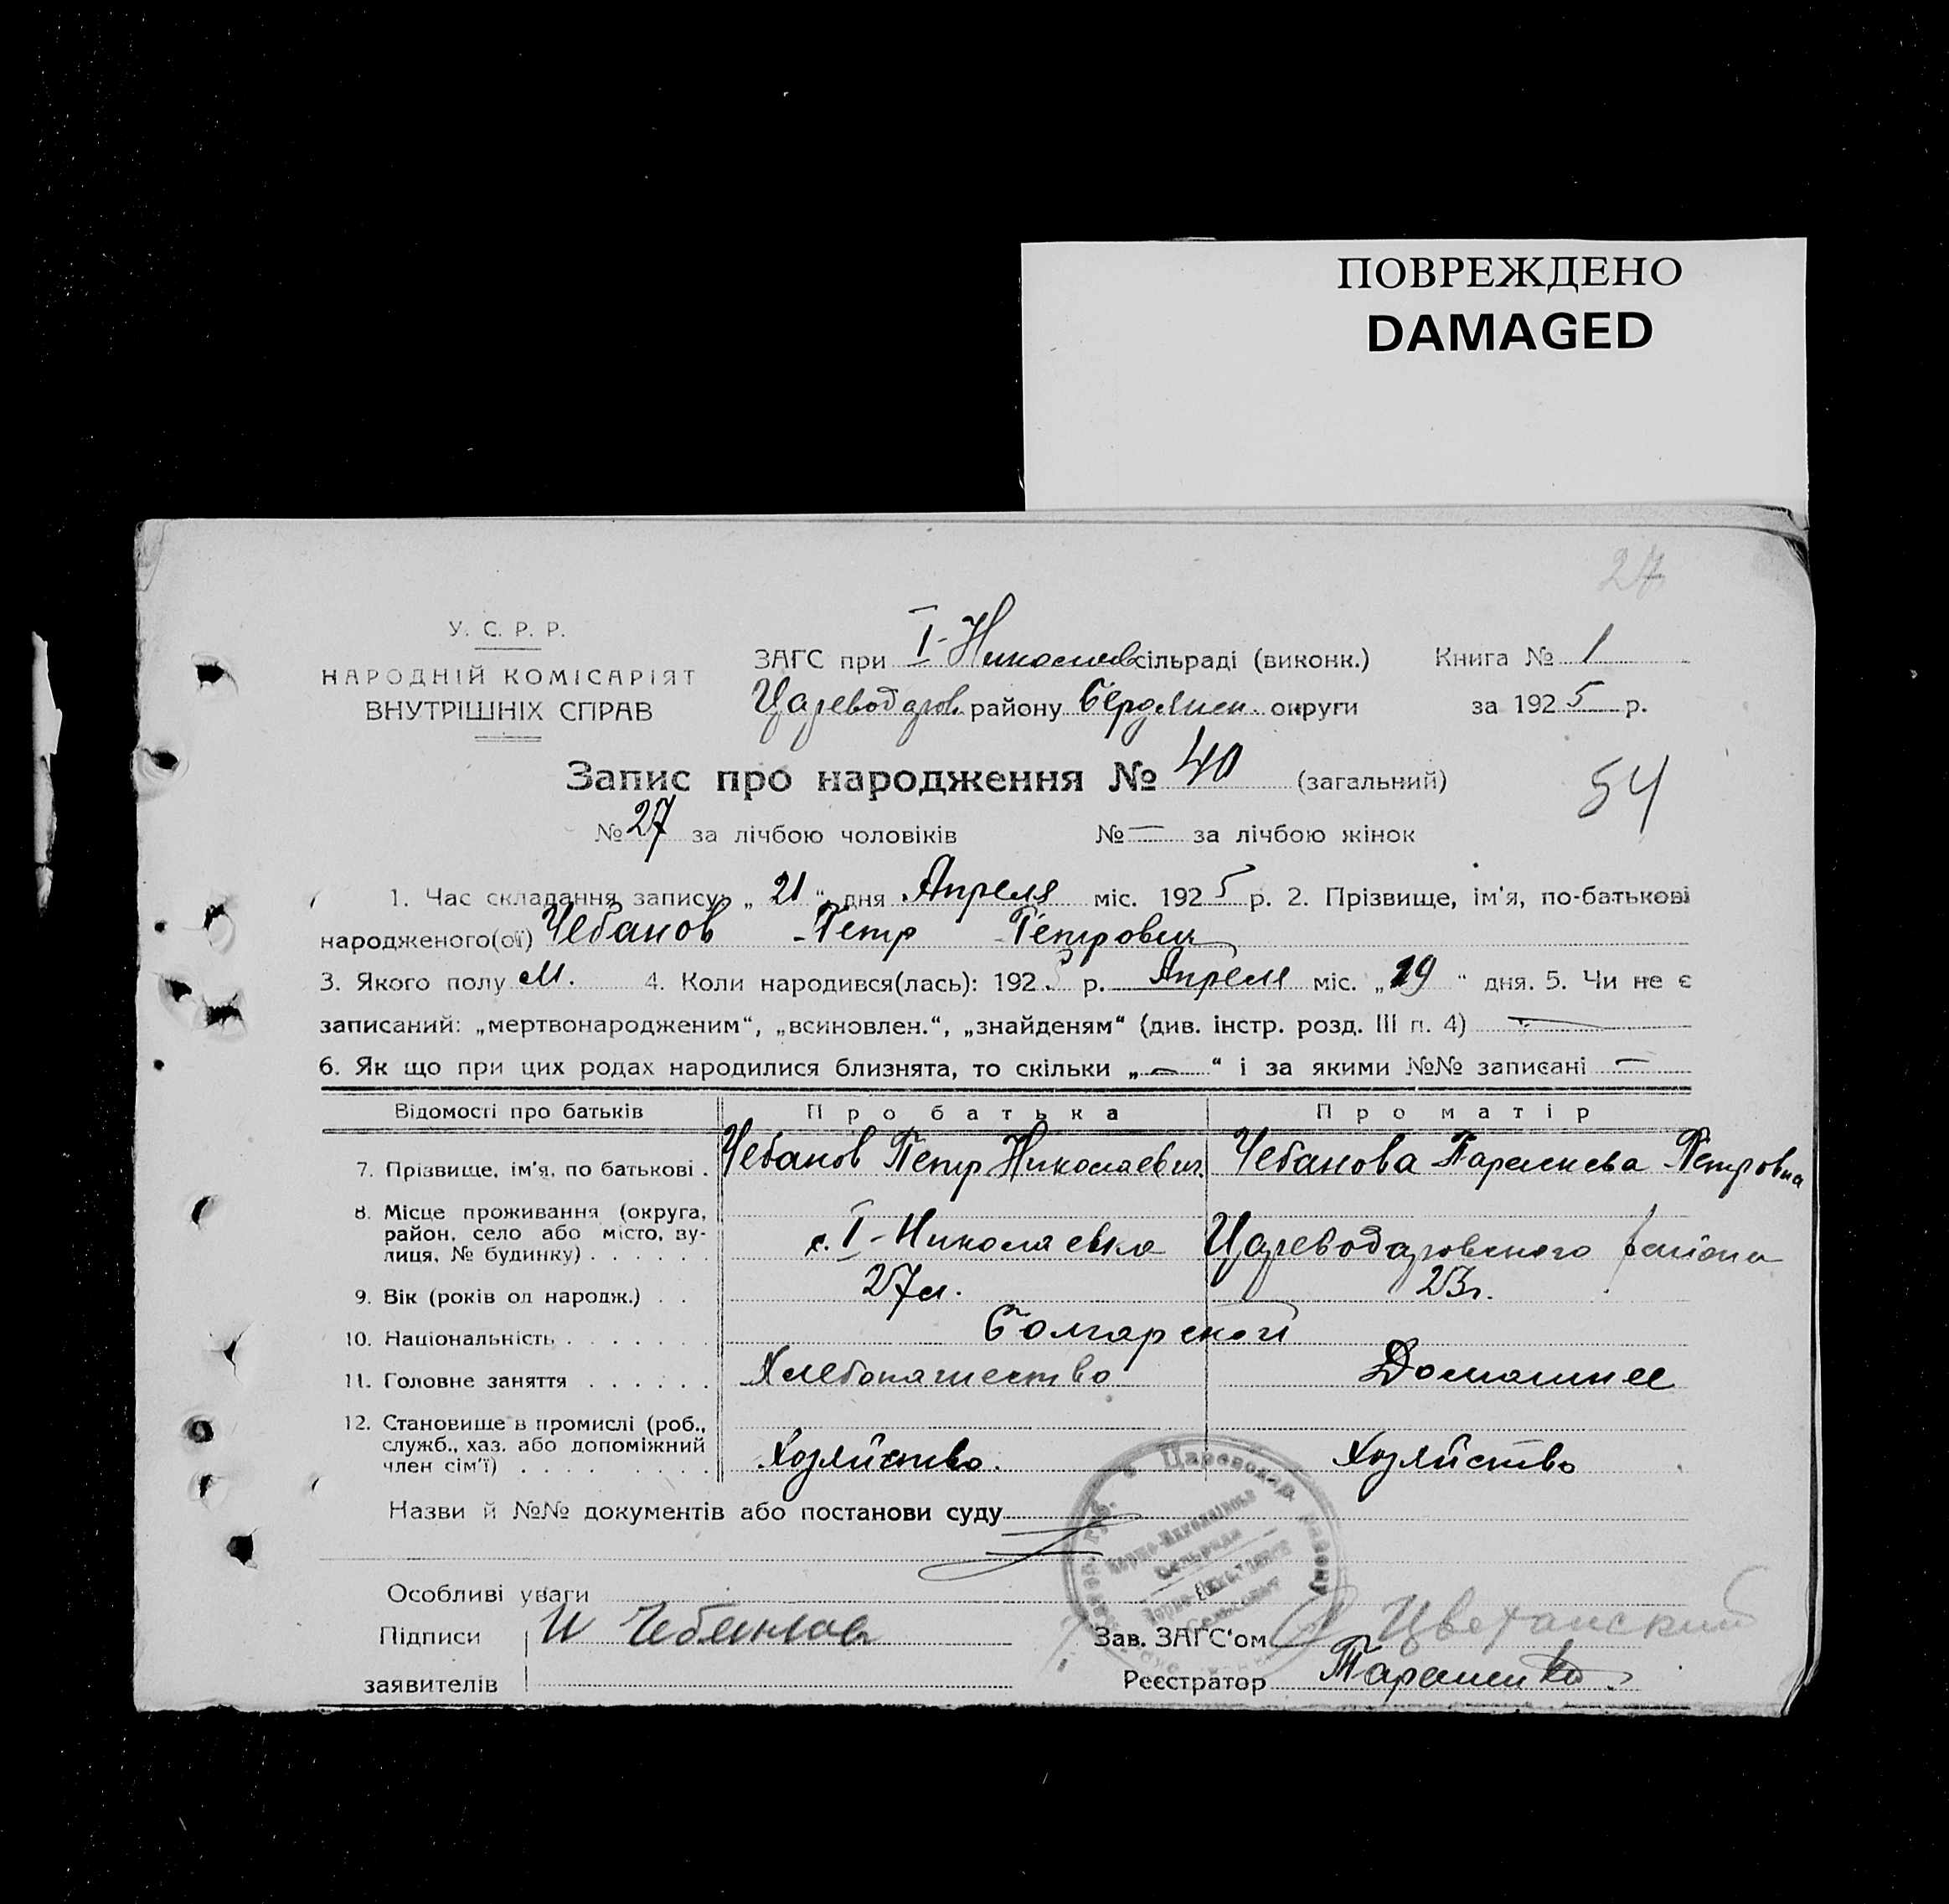 ПОВРЕЖДЕНО
DAMAGED
27
У. С. Р. Р.
НАРОДНІЙ КОМІСАРІЯТ
ВНУТРІШНІХ СПРАВ
ЗАГС при I-Николаев сільраді (виконк.) Книга № 1
Цареводаров. району Бердянск. округи за 1925 р.
Запис про народження № 40 (загальний)
54
№ 27 за лічбою чоловіків № — за лічбою жінок
1. Час складання запису: „21“ дня Апреля міс. 1925 р. 2. Прізвище, ім'я, по-батькові
народженого(ої) Чебанов Петр Петрович
3. Якого полу М. 4. Коли народився(лась): 1925 р. Апреля міс. „19“ дня. 5. Чи не є
записаний: „мертвонародженим“, „всиновлен.“, „знайденям“ (див. інстр. розд. III п. 4) —
6. Як що при цих родах народилися близнята, то скільки „—“ і за якими №№ записані —
Відомості про батьків Про батька Про матір
7. Прізвище, ім'я, по батькові . Чебанов Петр Николаевич Чебанова Парасκева Петровна
8. Місце проживання (округа,
район, село або місто, ву-
лиця, № будинку) . . . . . . с. I-Николаевка Цареводаровского района
9. Вік (років од народж.) . . 27 л. 23 г.
10. Національність . . . . . . . Болгарской
11. Головне заняття . . . . . . Хлебопашество Домашнее
12. Становище в промислі (роб.,
служб., хаз. або допоміжний
член сім'ї) . . . . . . . . Хозяйство. Хозяйство
Назви й №№ документів або постанови суду
Цареводар району
Особливі уваги
Підписи Чебанов Зав. ЗАГС'ом Цветанский
заявителів Реєстратор Тараненко